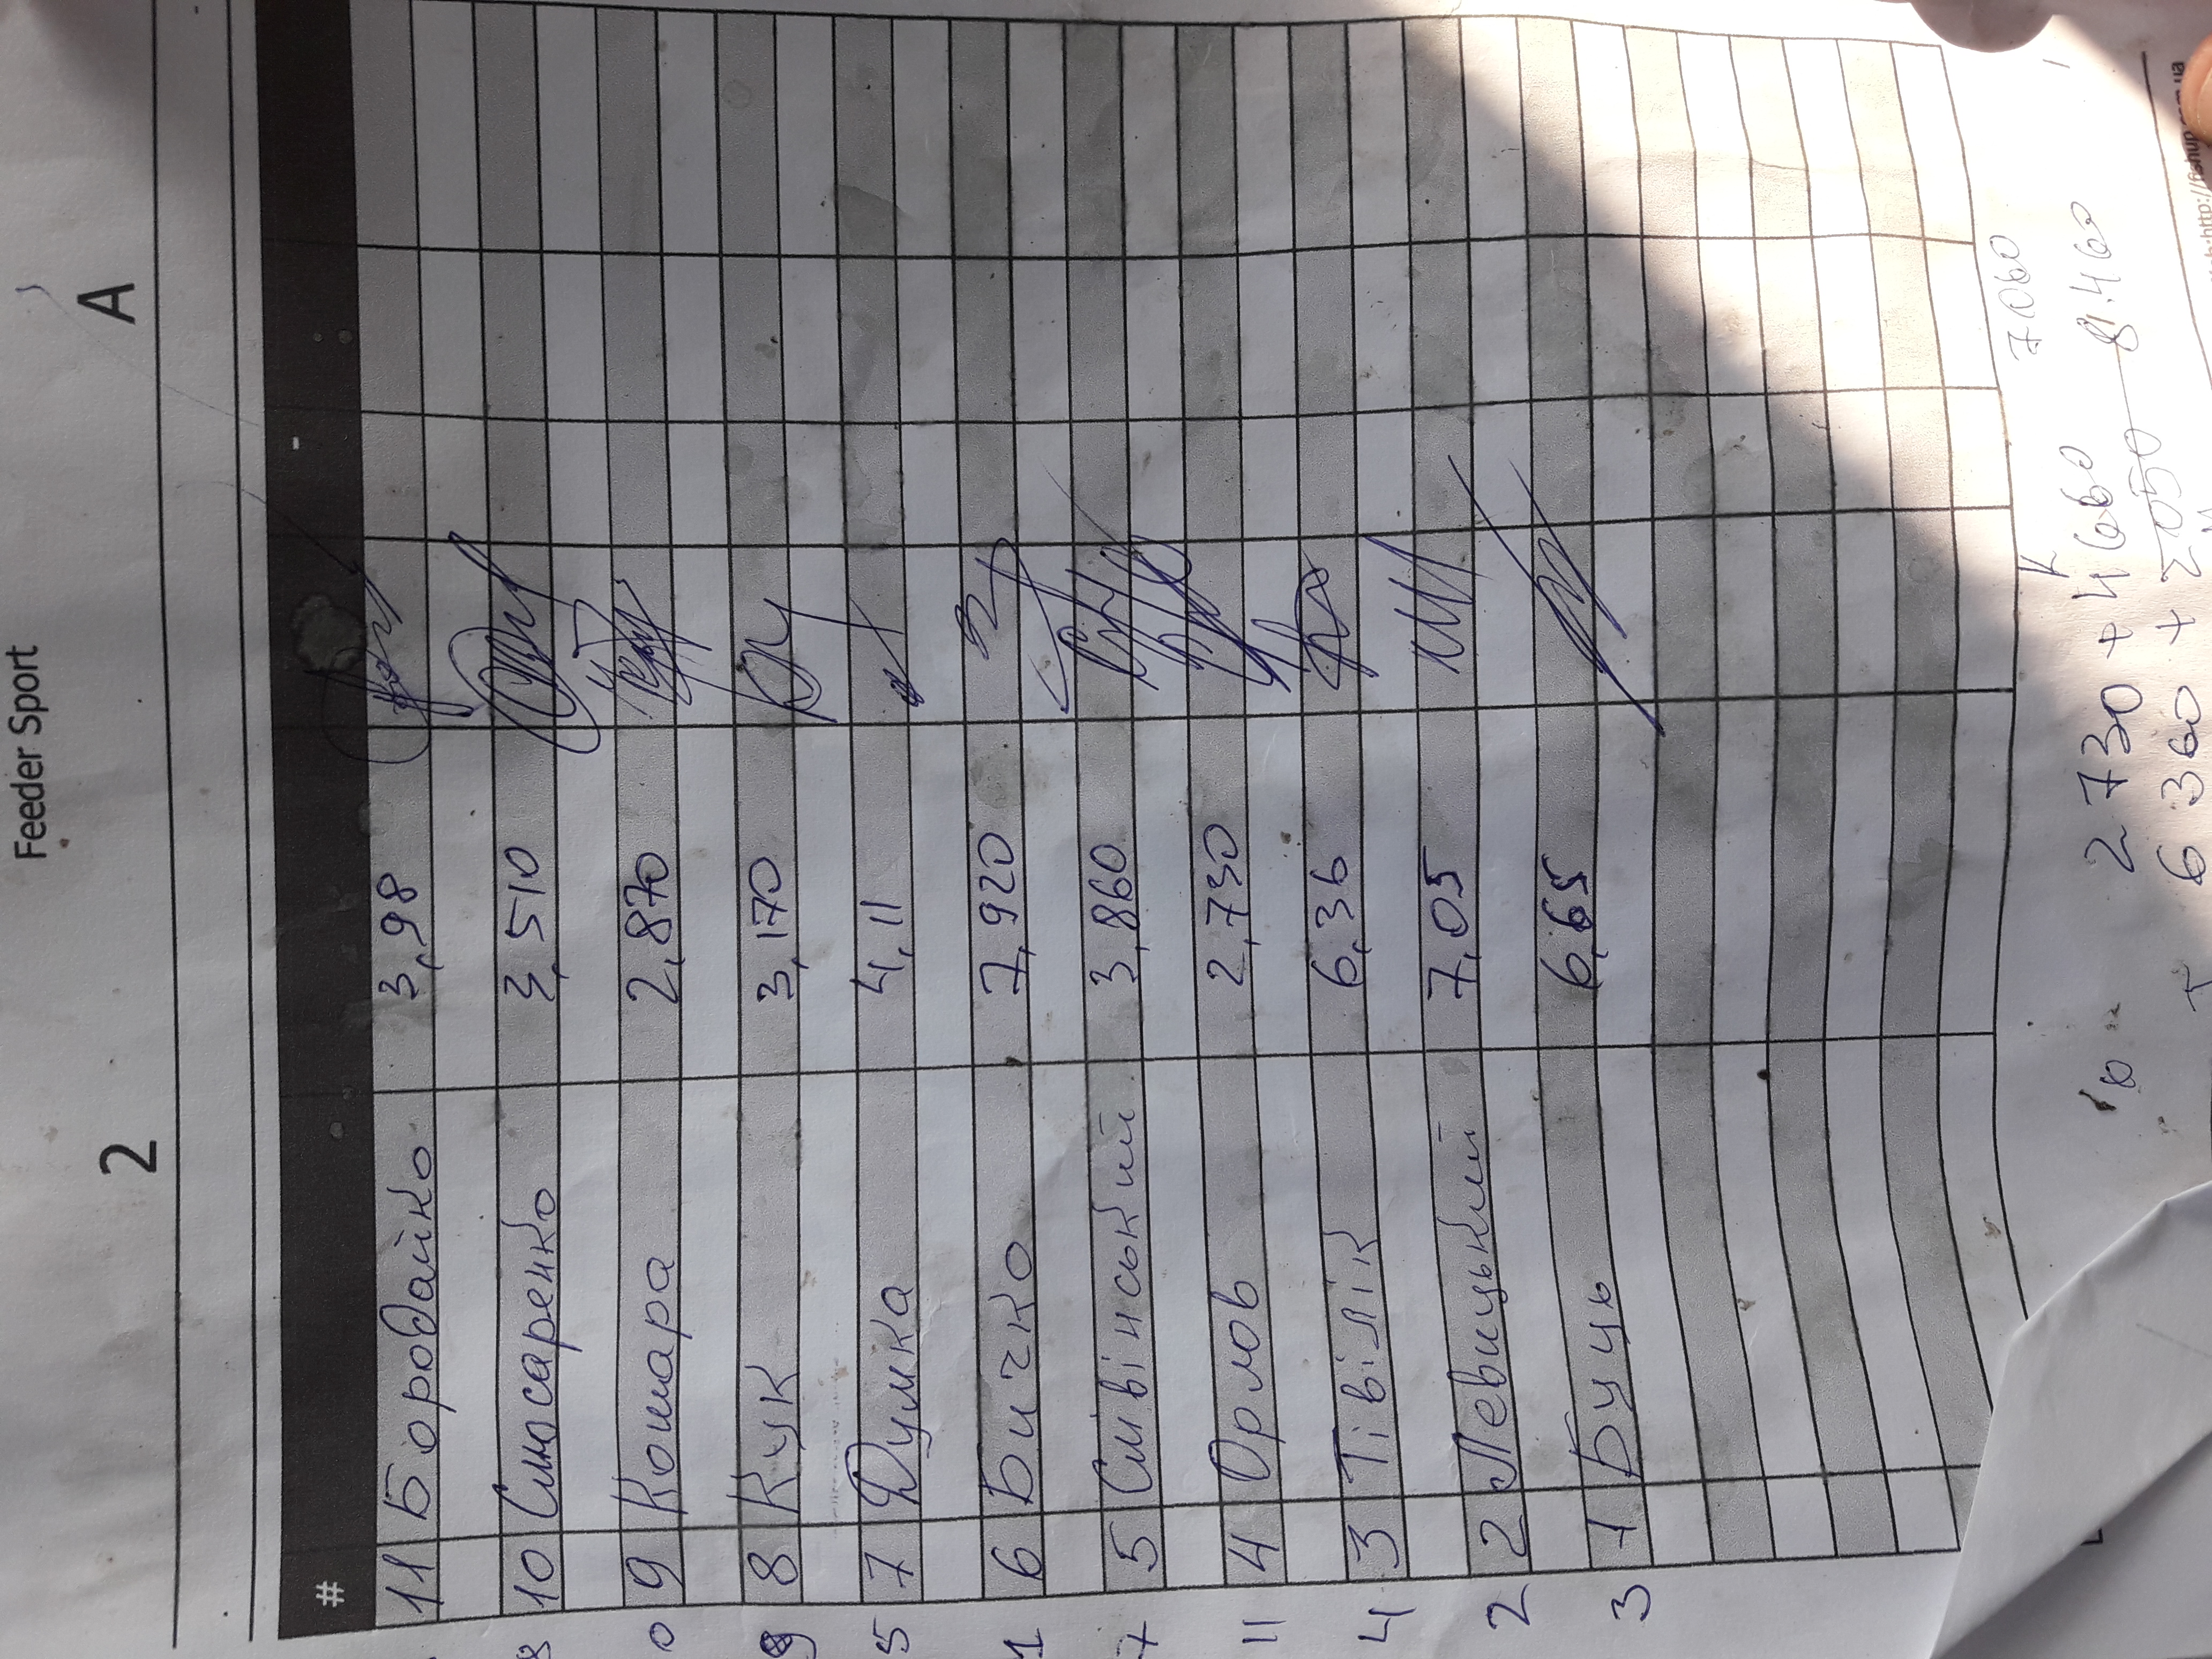 Feeder Sport
2 A
#
11 Бородайко 3,98
8 10 Слюсаренко 3,510
0 9 Кошара 2,870
9 8 Кук 3,170
5 7 Думка 4,11
1 6 Бичко 7,920
7 5 Слівінський 3,860
11 4 Орлов 2,730
4 3 Тівілік 6,36
2 2 Левицький 7,05
3 1 Буць 6,65
7.060
2 730 + 4 660
6 360 + 2050 8.460